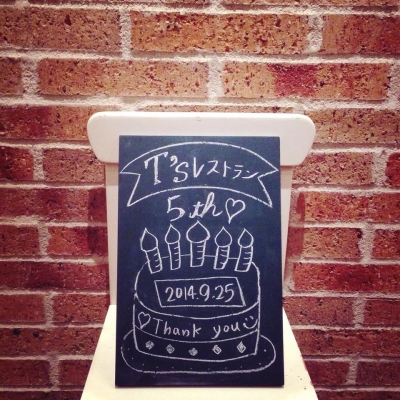 T'sレストラン
5th♡
2014.9.25
♡Thank you☺